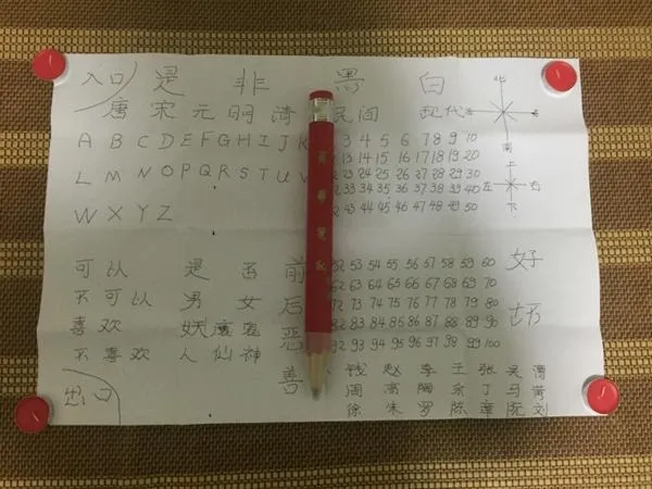 入口 是 非 黑 白
北
唐 宋 元 明 清 民间 现代
南
A B C D E F G H I J K 3 4 5 6 7 8 9 10
13 14 15 16 17 18 19 20
L M N O P Q R S T U V 23 24 25 26 27 28 29 30
33 34 35 36 37 38 39 40
上
左 右
下
W X Y Z 43 44 45 46 47 48 49 50
可以 是 否 前 52 53 54 55 56 57 58 59 60 好
62 63 64 65 66 67 68 69 70
不可以 男 女 后 72 73 74 75 76 77 78 79 80
喜欢 妖 魔 鬼 恶 82 83 84 85 86 87 88 89 90 坏
不喜欢 人 仙 神 92 93 94 95 96 97 98 99 100
善 钱 赵 李 王 张 吴
出口 周 高 陶 余 丁 马 黄
徐 朱 罗 陈 章 阮 刘